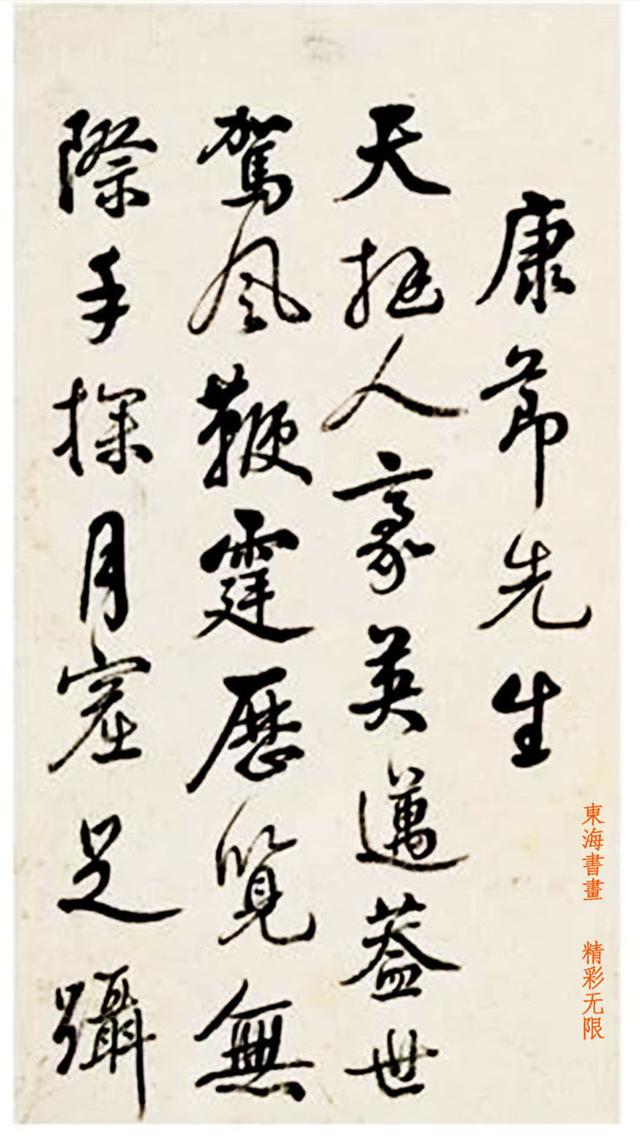 康節先生
天挺人豪英邁蓋世
駕風鞭霆歷覽無
際手探月窟足躡
東海書畫 精彩无限